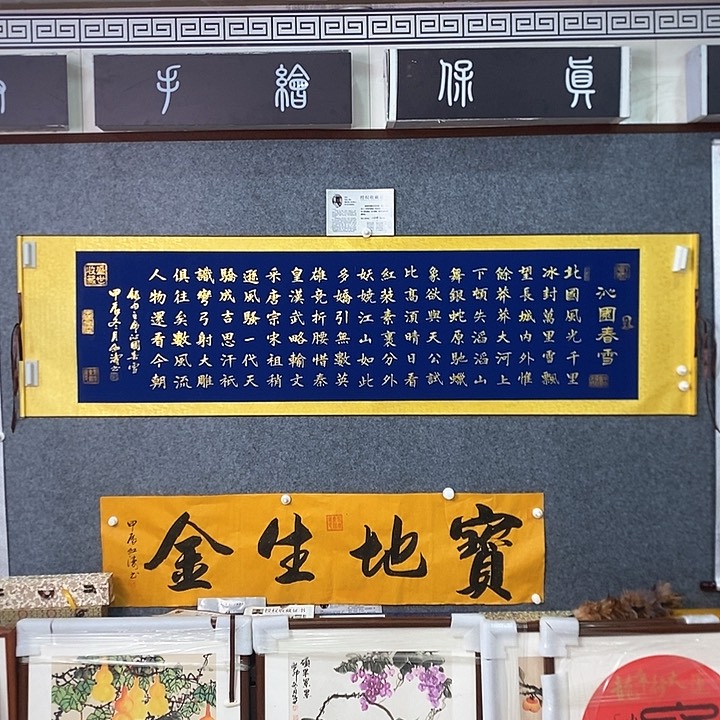 真保
繪手
沁園春雪
北國風光千里
冰封萬里雪飄
望長城內外惟
餘莽莽大河上
下頓失滔滔山
舞銀蛇原馳蠟
象欲與天公試
比高須晴日看
紅裝素裹分外
妖嬈江山如此
多嬌引無數英
雄竞折腰惜秦
皇漢武略輸文
采唐宗宋祖稍
遜風騷一代天
驕成吉思汗祇
識彎弓射大雕
俱往矣數風流
人物還看今朝
甲辰冬月
盛世收藏
寶地生金
甲辰
授权收藏证书